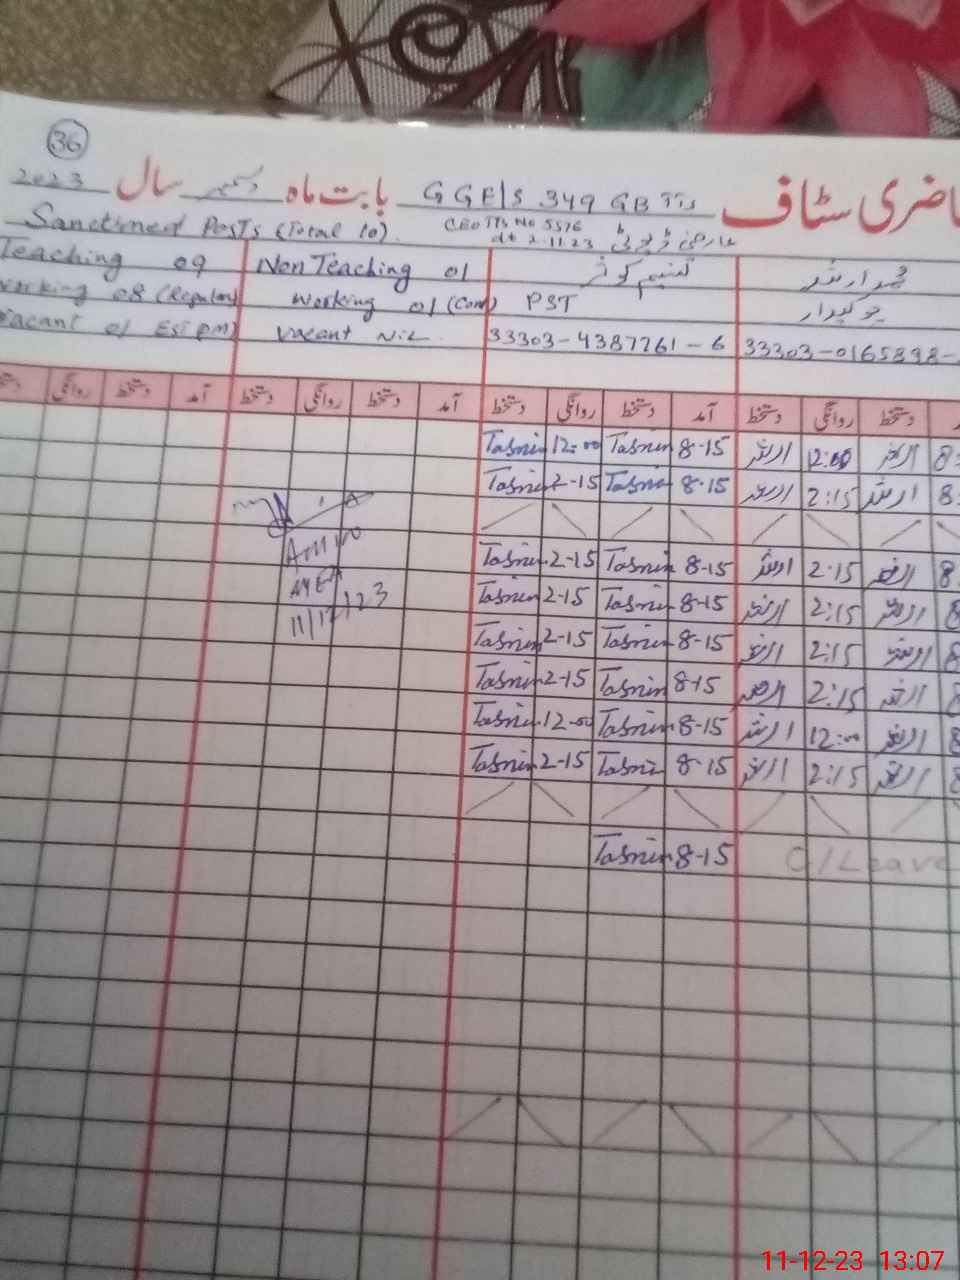 36
حاضری سٹاف G GE/S 349 GB TTS بابت ماہ دسمبر سال 2023
Sanctioned Posts (Total 10). CEO TTS No 5576
dt 2.11.23 عارضی ڈیوٹی
محمد ارشد تسنیم کوثر Non Teaching 01 Teaching 09
چوکیدار PST Working 01 (Con) Working 08 (Regular)
33303-0165898- 33303-4387261-6 Vacant Nil. Vacant 01 EST (PM)
آمد دستخط روانگی دستخط آمد دستخط روانگی دستخط آمد دستخط روانگی دستخط آمد دستخط روانگی
8: ارشد 12:00 ارشد 8-15 Tasnim 12:00 Tasnim
8: ارشد 2:15 ارشد 8-15 Tasnim 2-15 Tasnim
8 ارشد 2:15 ارشد 8-15 Tasnim 2-15 Tasnim
8 ارشد 2:15 ارشد 8-15 Tasnim 2-15 Tasnim
8 ارشد 2:15 ارشد 8-15 Tasnim 2-15 Tasnim
8 ارشد 2:15 ارشد 8-15 Tasnim 2-15 Tasnim
8 ارشد 12:00 ارشد 8-15 Tasnim 12-00 Tasnim
8 ارشد 2:15 ارشد 8-15 Tasnim 2-15 Tasnim
C/Leave 8-15 Tasnim
AEO
11/12/23
11-12-23 13:07